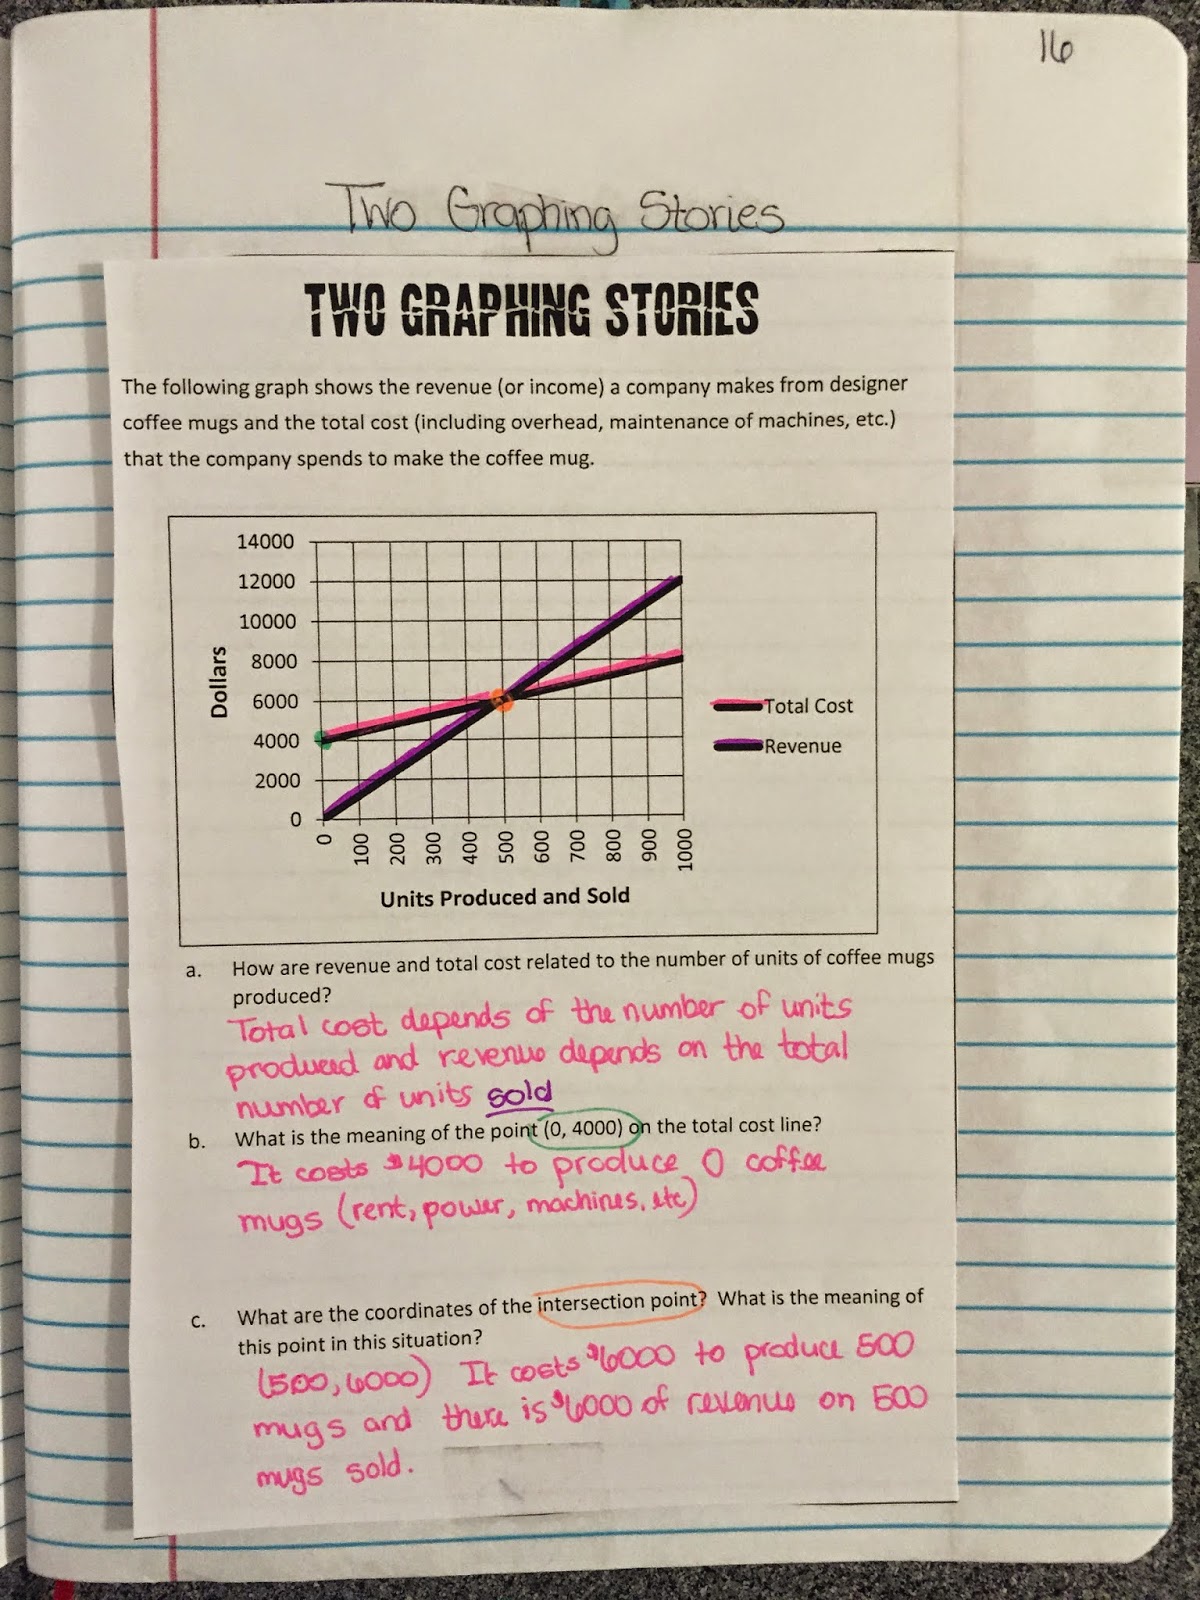 16
Two Graphing Stories
TWO GRAPHING STORIES
The following graph shows the revenue (or income) a company makes from designer
coffee mugs and the total cost (including overhead, maintenance of machines, etc.)
that the company spends to make the coffee mug.
14000
12000
10000
8000
6000
4000
2000
0
Dollars
0 100 200 300 400 500 600 700 800 900 1000
Units Produced and Sold
Total Cost
Revenue
a. How are revenue and total cost related to the number of units of coffee mugs
produced?
Total cost depends of the number of units
produced and revenue depends on the total
number of units sold
b. What is the meaning of the point (0, 4000) on the total cost line?
It costs $4000 to produce 0 coffee
mugs (rent, power, machines, etc)
c. What are the coordinates of the intersection point? What is the meaning of
this point in this situation?
(500, 6000) It costs $6000 to produce 500
mugs and there is $6000 of revenue on 500
mugs sold.